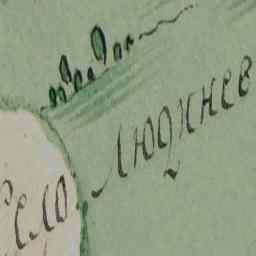 Село Люджнев